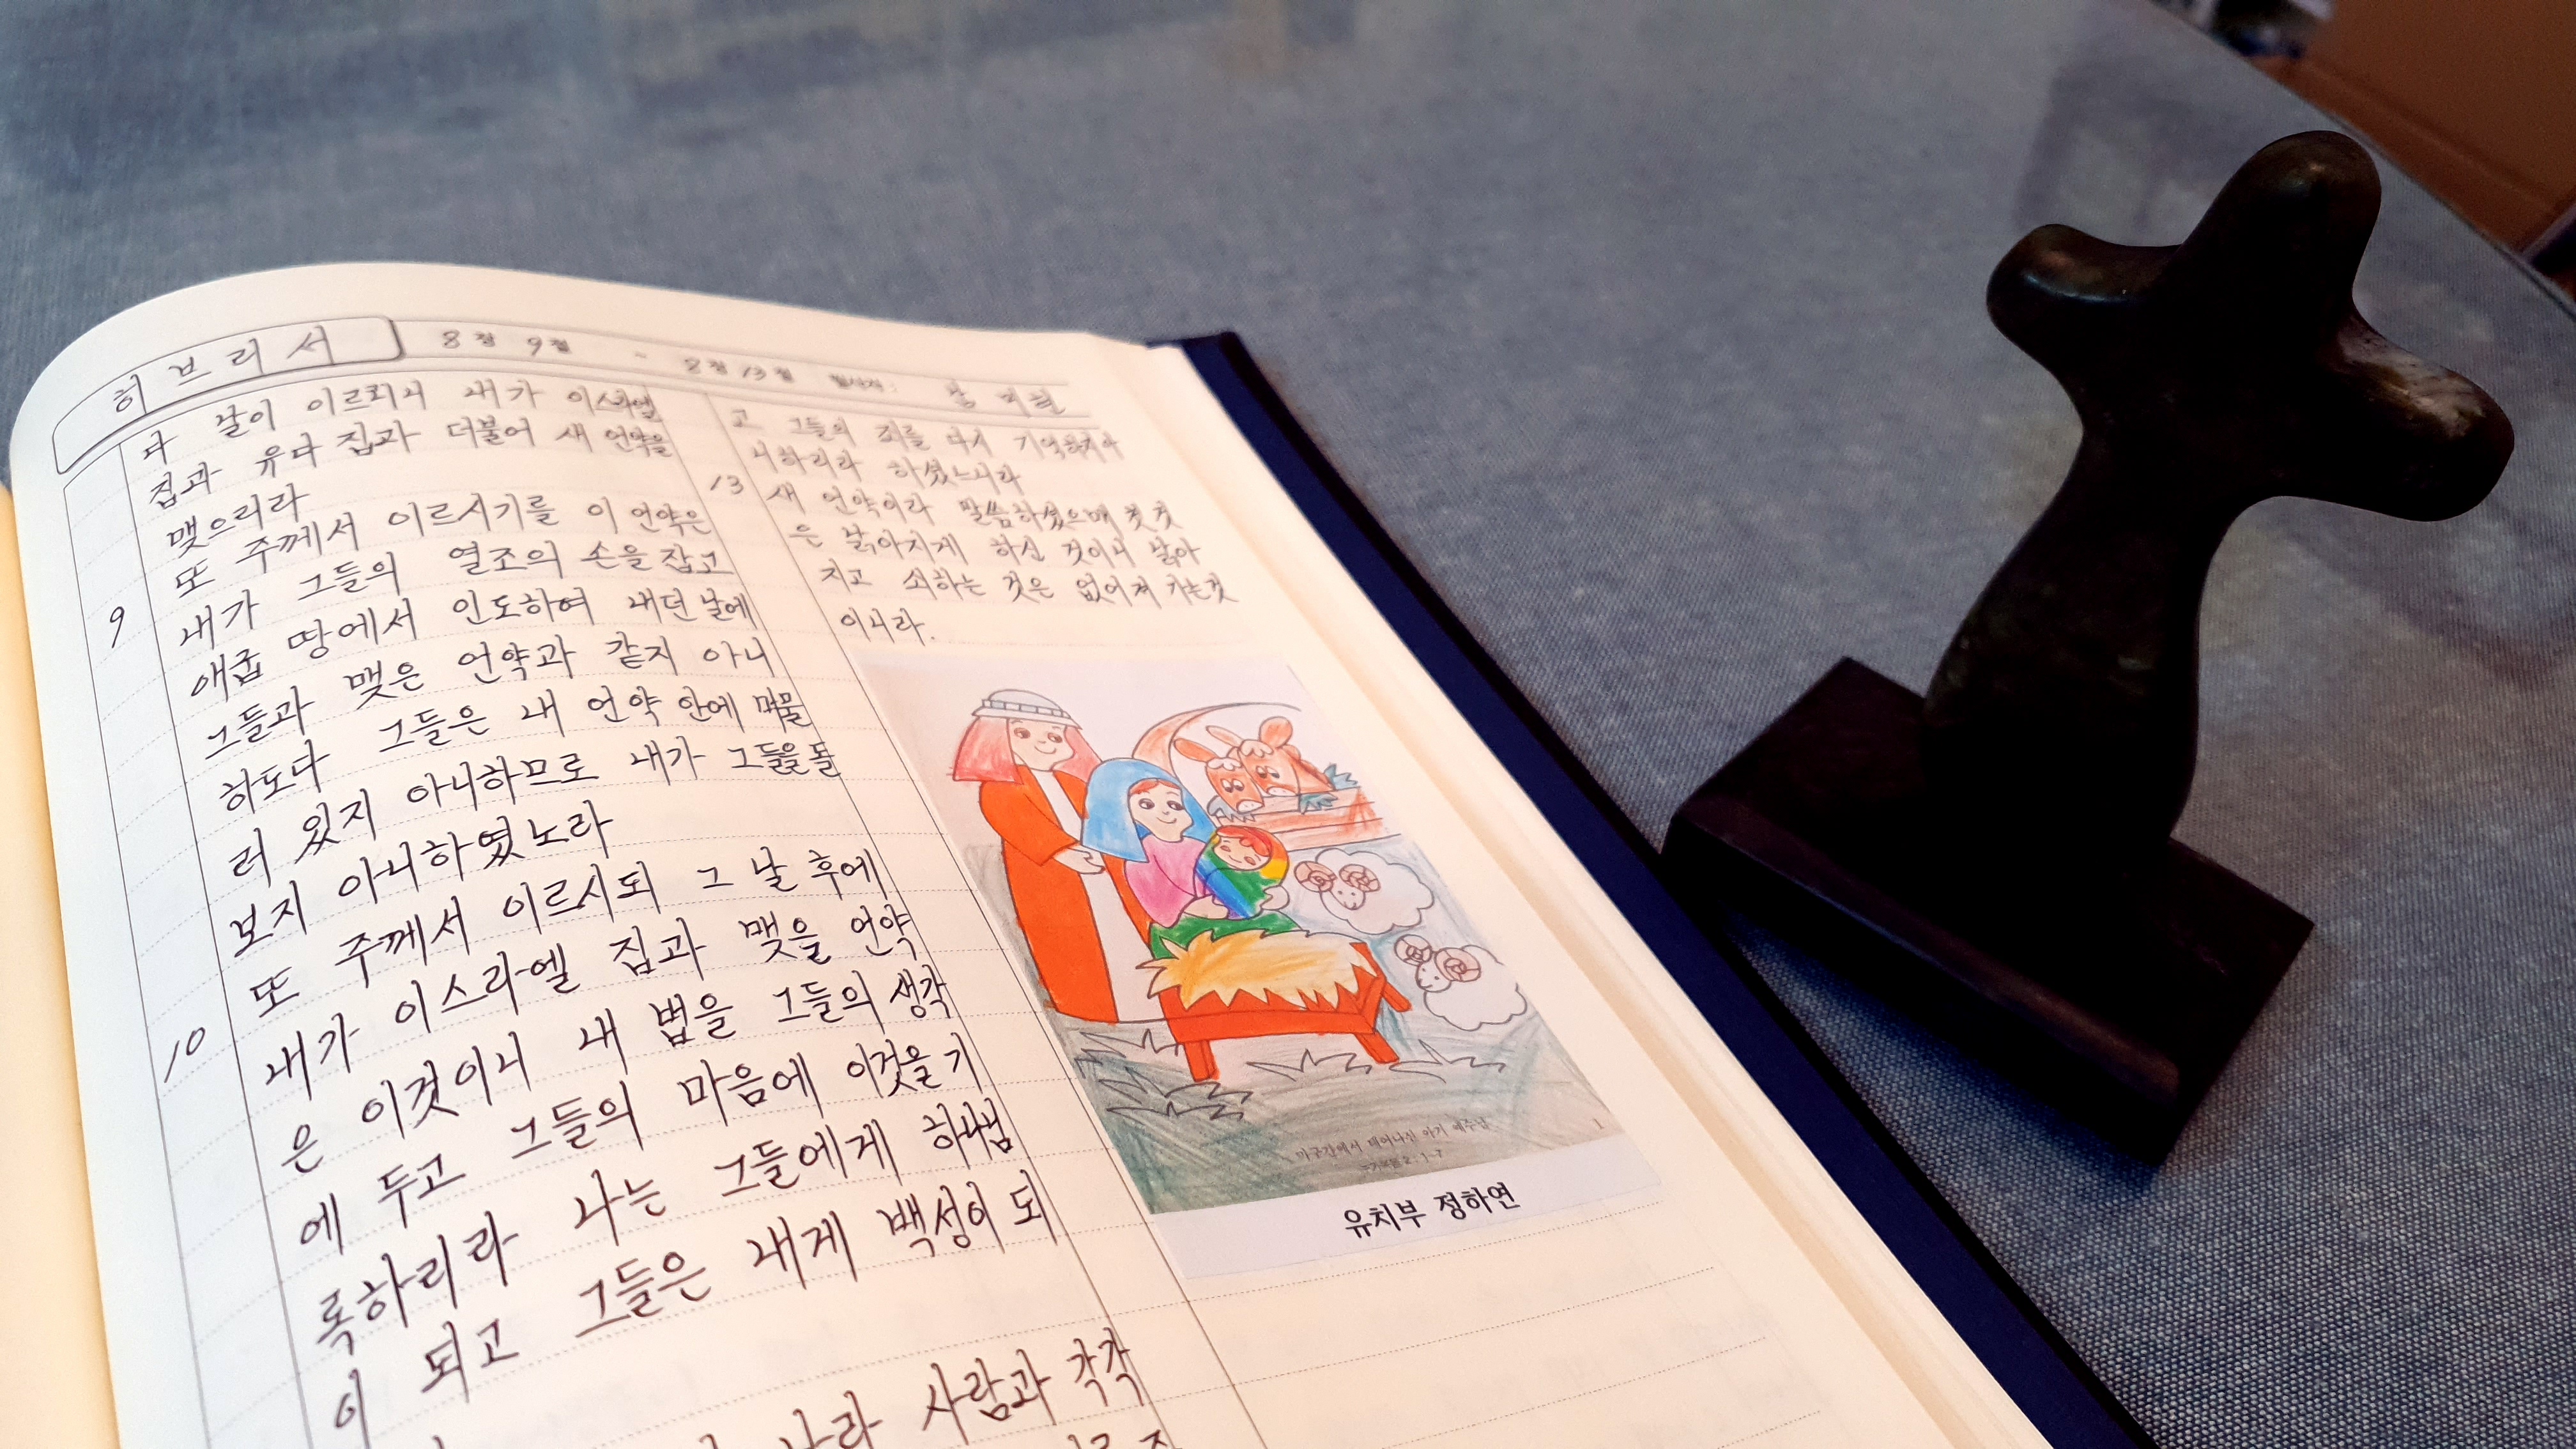 히브리서
8장 9절 ~ 8장 13절 필사자:
다 날이 이르리니 내가 이스라엘
집과 유다 집과 더불어 새 언약을
맺으리라
9 또 주께서 이르시기를 이 언약은
내가 그들의 열조의 손을 잡고
애굽 땅에서 인도하여 내던 날에
그들과 맺은 언약과 같지 아니
하도다 그들은 내 언약 안에 머물
러 있지 아니하므로 내가 그들을 돌
보지 아니하였노라
10 또 주께서 이르시되 그 날 후에
내가 이스라엘 집과 맺을 언약
은 이것이니 내 법을 그들의 생각
에 두고 그들의 마음에 이것을 기
록하리라 나는 그들에게 하나님
이 되고 그들은 내게 백성이 되
나라 사람과 각각
고 그들의 죄를 다시 기억하지 아
니하리라 하셨느니라
13 새 언약이라 말씀하셨으매 첫 것
은 낡아지게 하신 것이니 낡아
지고 쇠하는 것은 없어져 가는 것
이니라.
마구간에서 태어나신 아기 예수님
1
유치부 정하연